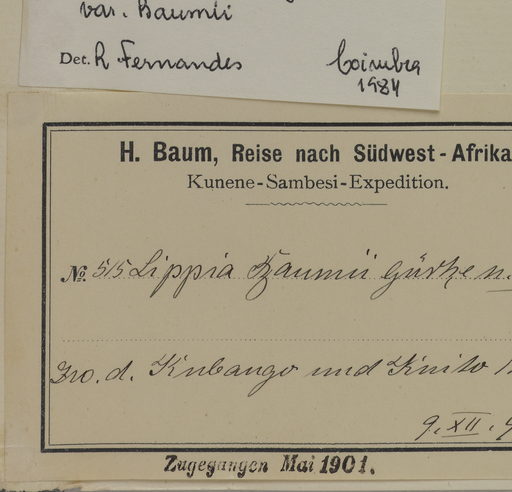 var. Baumii
Det. R Fernandes Coimbra
1984
H. Baum, Reise nach Südwest-Afrika
Kunene-Sambesi-Expedition.
No. 515 Lippia Baumii Gürke n.
Zw. d. Kubango und Kuito
9. XII.
Zugegangen Mai 1901.